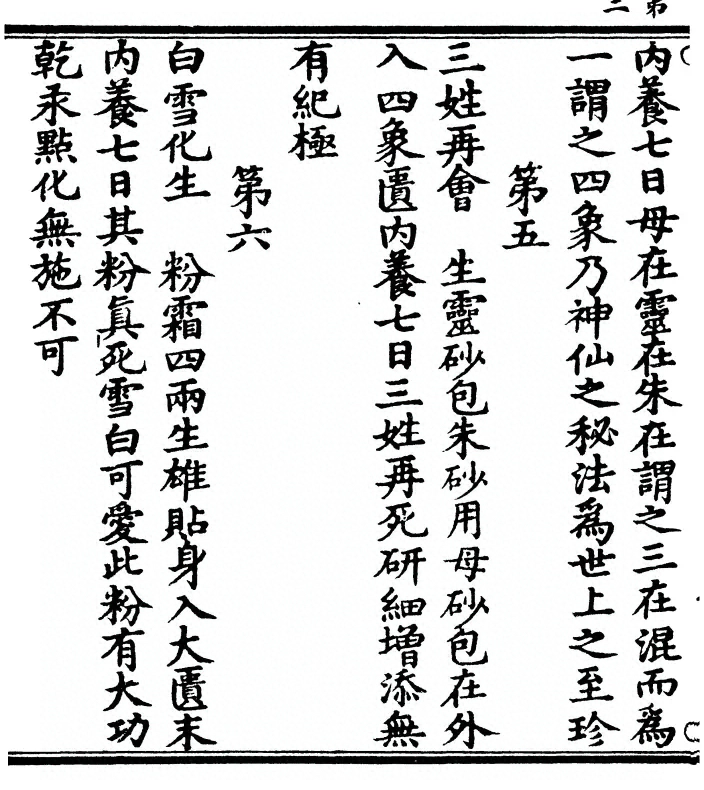 第二
内養七日母在靈在朱在謂之三在混而爲
一謂之四象乃神仙之秘法爲世上之至珍
第五
三姓再會　生靈砂包朱砂用母砂包在外
入四象匱内養七日三姓再死研細增添無
有紀極
第六
白雪化生　粉霜四兩生雄貼身入大匱末
内養七日其粉眞死雪白可愛此粉有大功
乾汞點化無施不可